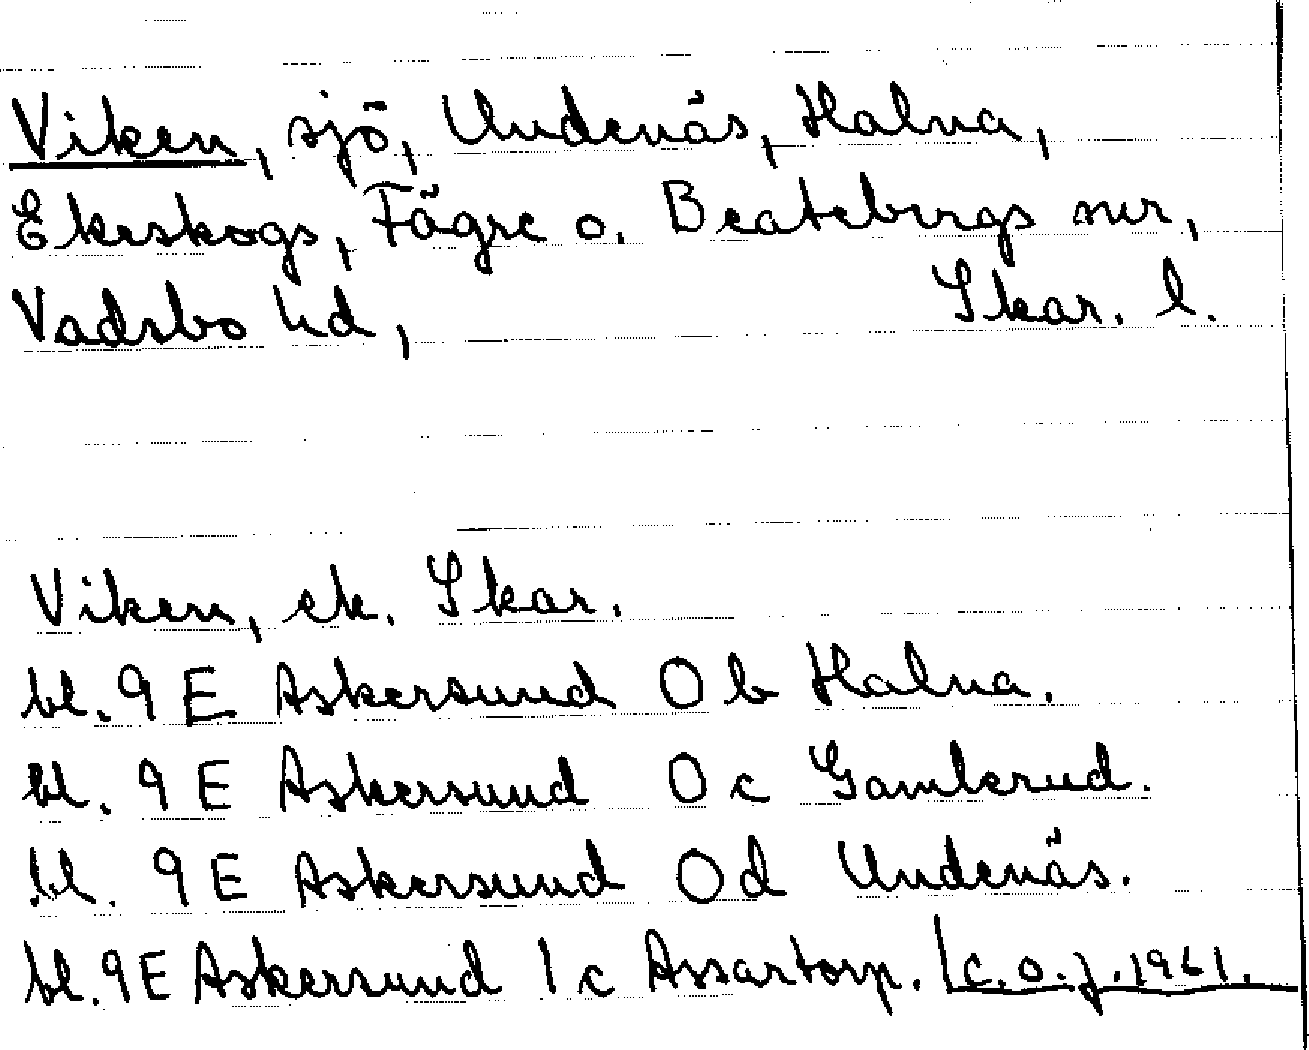 Viken, sjö, Undenäs, Halna,
Ekeskogs, Fägre o. Beatebergs snr,
Vadsbo hd, Skar. l.
Viken, ek. Skar.
bl. 9 E Askersund 0 b Halna.
bl. 9 E Askersund 0 c Gamlerud.
bl. 9 E Askersund 0 d Undenäs.
bl. 9 E Askersund 1 c Assartorp. C.O.J. 1961.